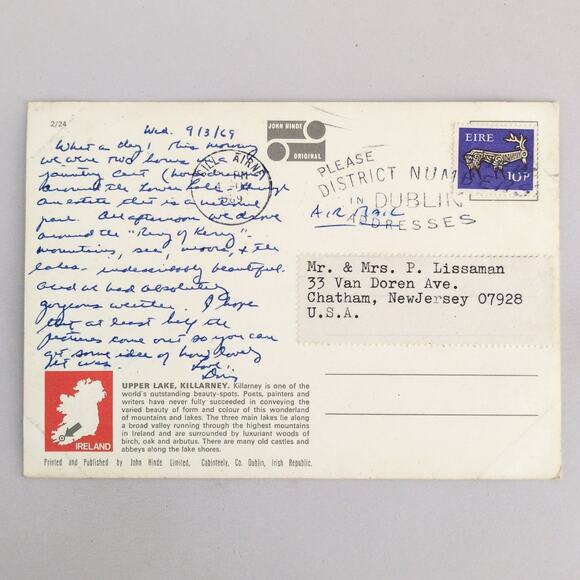 2/24
Wed. 9/3/69
What a day! This morning
we were two hours in a
jaunting cart (horse drawn)
around the lower lake & through
an estate that is a national
park. All afternoon we drove
around the "Ring of Kerry".
mountains, sea, moors, & the
lakes - indescribably beautiful.
and we had absolutely
gorgeous weather. I hope
that at least half the
pictures come out so you can
get some idea of how lovely
it was. Love,
JOHN HINDE
ORIGINAL
CILL AIRNE
PM
PLEASE
DISTRICT NUMBER
IN DUBLIN
ADDRESSES
EIRE
10P
AIR MAIL
Mr. & Mrs. P. Lissaman
33 Van Doren Ave.
Chatham, NewJersey 07928
U.S.A.
IRELAND
UPPER LAKE, KILLARNEY. Killarney is one of the
world's outstanding beauty-spots. Poets, painters and
writers have never fully succeeded in conveying the
varied beauty of form and colour of this wonderland
of mountains and lakes. The three main lakes lie along
a broad valley running through the highest mountains
in Ireland and are surrounded by luxuriant woods of
birch, oak and arbutus. There are many old castles and
abbeys along the lake shores.
Printed and Published by John Hinde Limited, Cabinteely, Co. Dublin, Irish Republic.